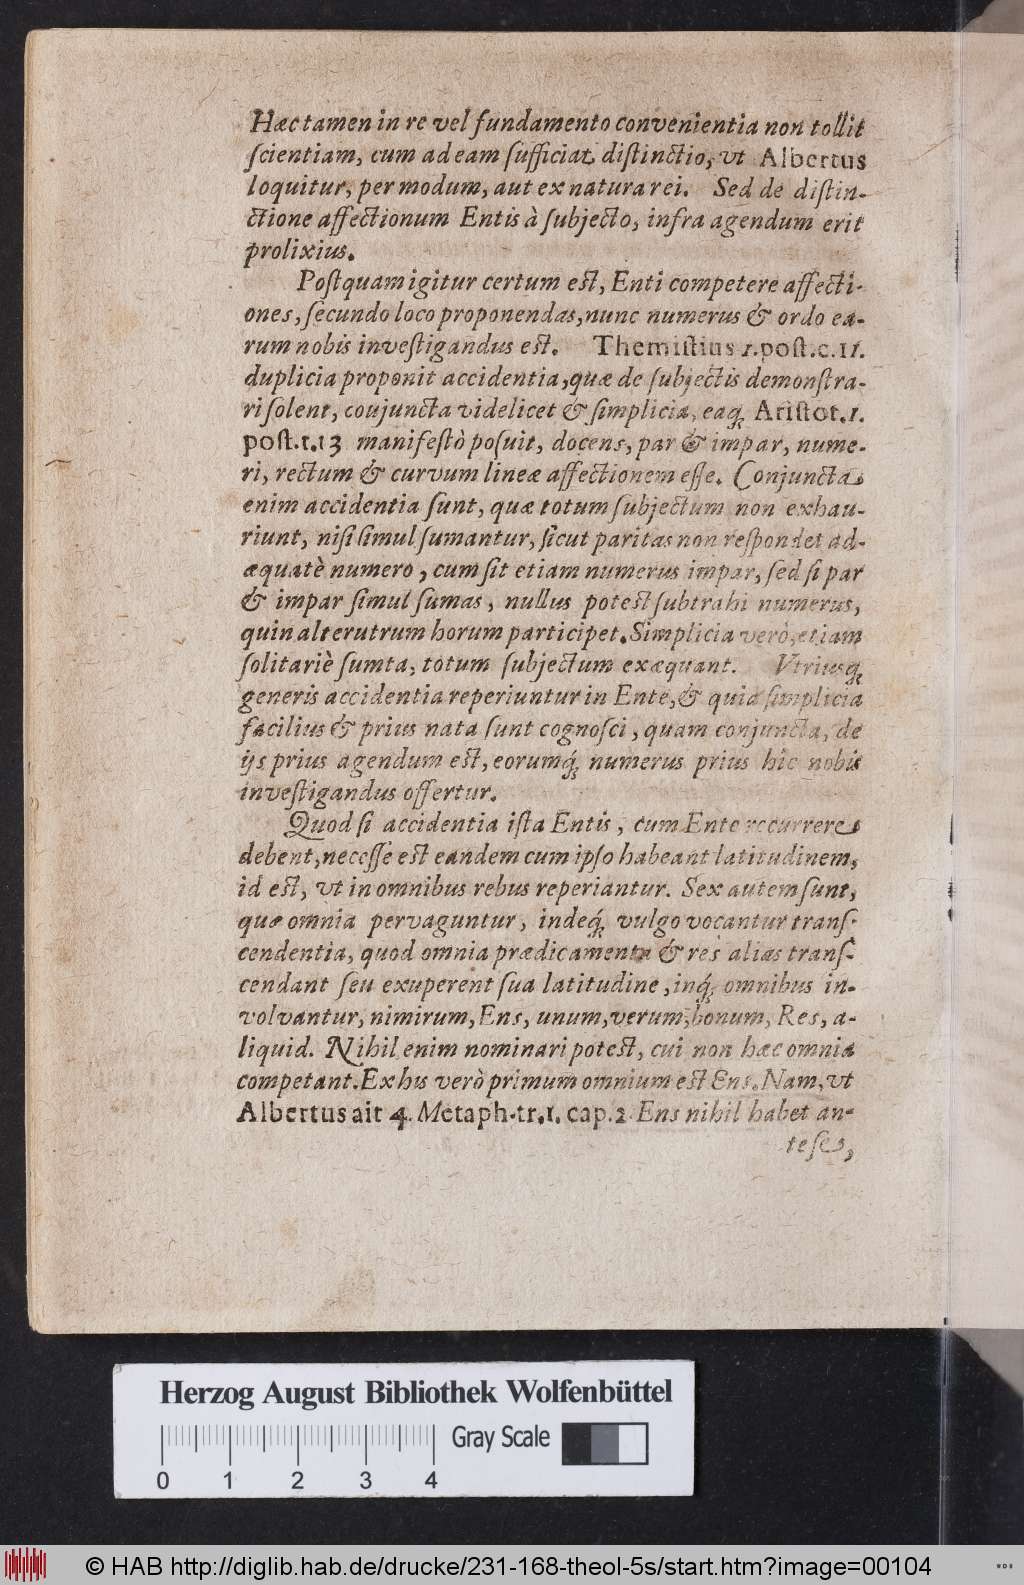 Hæc tamen in re vel fundamento convenientia non tollit
ſcientiam, cum ad eam ſufficiat diſtinctio, vt Albertus
loquitur, per modum, aut ex natura rei. Sed de diſtin-
ctione affectionum Entis à ſubjecto, infra agendum erit
prolixius.
Poſtquam igitur certum eſt, Enti competere affecti-
ones, ſecundo loco proponendas, nunc numerus & ordo ea-
rum nobis inveſtigandus eſt. Themiſtius 1. poſt. c. 11.
duplicia proponit accidentia, quæ de ſubjectis demonſtra-
ri ſolent, conjuncta videlicet & ſimplicia, eaq́; Ariſtot. 1.
poſt. t. 13 manifeſtò poſuit, docens, par & impar, nume-
ri, rectum & curvum lineæ affectionem eſſe. Conjuncta
enim accidentia ſunt, quæ totum ſubjectum non exhau-
riunt, niſi ſimul ſumantur, ſicut paritas non reſpondet ad-
æquatè numero, cum ſit etiam numerus impar, ſed ſi par
& impar ſimul ſumas, nullus potest ſubtrahi numerus,
quin alterutrum horum participet. Simplicia verò, etiam
ſolitariè ſumta, totum ſubjectum exæquant. Vtriusq́;
generis accidentia reperiuntur in Ente, & quia ſimplicia
facilius & prius nata ſunt cognoſci, quam conjuncta, de
ijs prius agendum est, eorumq́; numerus prius hîc nobis
inveſtigandus offertur.
Quod ſi accidentia iſta Entis, cum Ente recurrere
debent, neceſſe est eandem cum ipſo habeant latitudinem,
id est, vt in omnibus rebus reperiantur. Sex autem ſunt,
quæ omnia pervaguntur, indeq́; vulgo vocantur tranſ-
cendentia, quod omnia prædicamenta & res alias tranſ-
cendant ſeu exuperent ſua latitudine, inq́; omnibus in-
volvantur, nimirum, Ens, unum, verum, bonum, Res, a-
liquid. Nihil enim nominari potest, cui non hæc omnia
competant. Ex his verò primum omnium est Ens. Nam, vt
Albertus ait 4. Metaph. tr. 1. cap. 2 Ens nihil habet an-
te ſe,
Herzog August Bibliothek Wolfenbüttel
0 1 2 3 4 Gray Scale
© HAB http://diglib.hab.de/drucke/231-168-theol-5s/start.htm?image=00104